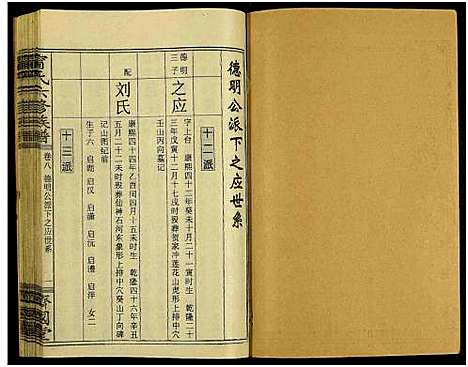 德明公派下之应世系
十二派
德明三子
之应
字上台 康熙四十二年癸未十月二十一日寅时生 乾隆二十
三年戊寅十二月十七戌时殁葬贺家冲莲花山虎形上排中穴
壬山丙向墓记
配
刘氏
康熙四十四年乙酉闰四月十五未时生 乾隆四十六年辛丑
五月二十二未时殁葬仙神石河东象形上持中穴癸山丁向碑
记山图纪前
生子六 启朝 启汉 启潇 启沅 启澧 启洋 女二
十三派
氏六修族谱
卷八 德明公派下之应世系